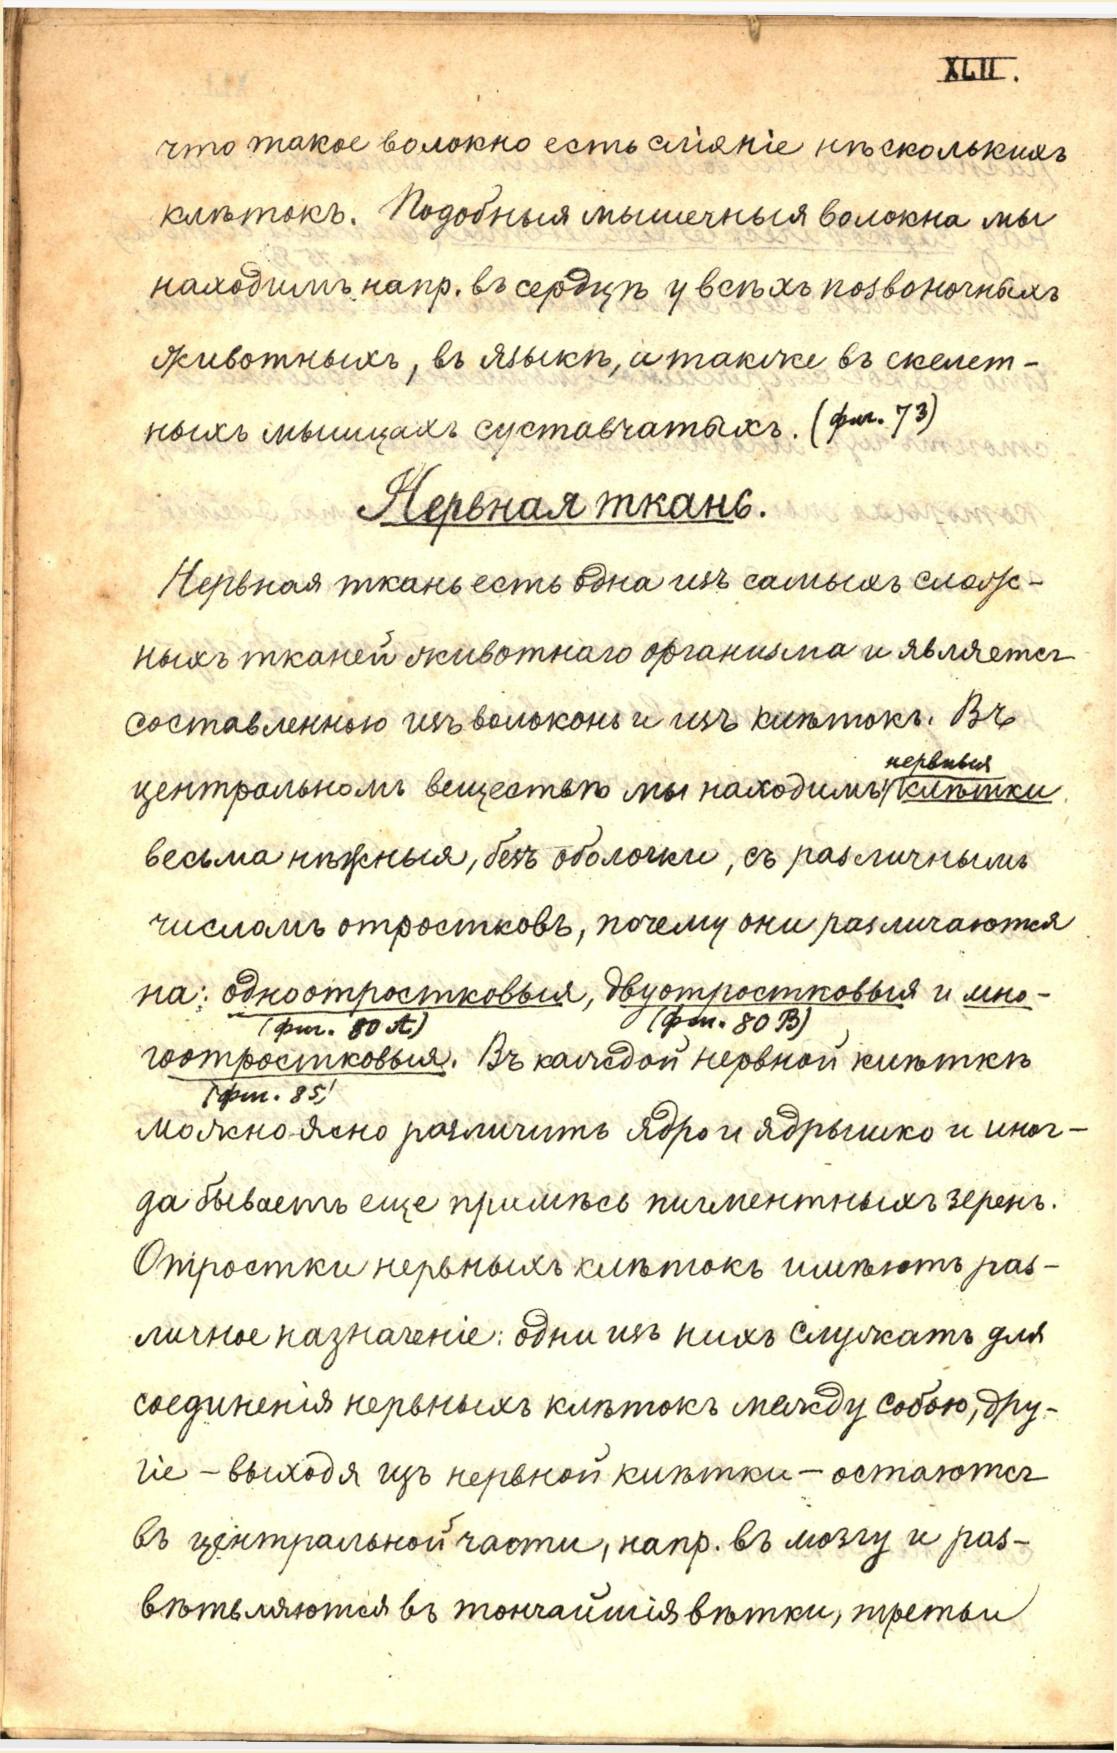 XLII.
что такое волокно есть сліяніе нѣсколькихъ
клѣтокъ. Подобныя мышечныя волокна мы
находимъ напр. въ сердцѣ у всѣхъ позвоночныхъ
животныхъ, въ языкѣ, а также въ скелет-
ныхъ мышцахъ суставчатыхъ. (фиг. 73)
Нервная ткань.
Нервная ткань есть одна изъ самыхъ слож-
ныхъ тканей животнаго организма и является
составленною изъ волоконъ и изъ клѣтокъ. Въ
нервныя
центральномъ веществѣ мы находимъ клѣтки
весьма нѣжныя, безъ оболочки, съ различнымъ
числомъ отростковъ, почему они различаются
на: одноотростковыя, двуотростковыя и мно-
(фиг. 80 А) (фиг. 80 В)
гоотростковыя. Въ каждой нервной клѣткѣ
(фиг. 85)
можно ясно различить ядро и ядрышко и иног-
да бываетъ еще примѣсь пигментныхъ зеренъ.
Отростки нервныхъ клѣтокъ имѣютъ раз-
личное назначеніе: одни изъ нихъ служатъ для
соединенія нервныхъ клѣтокъ между собою, дру-
гіе – выходя изъ нервной клѣтки – остаются
въ центральной части, напр. въ мозгу и раз-
вѣтвляются въ тончайшія вѣтки, третьи